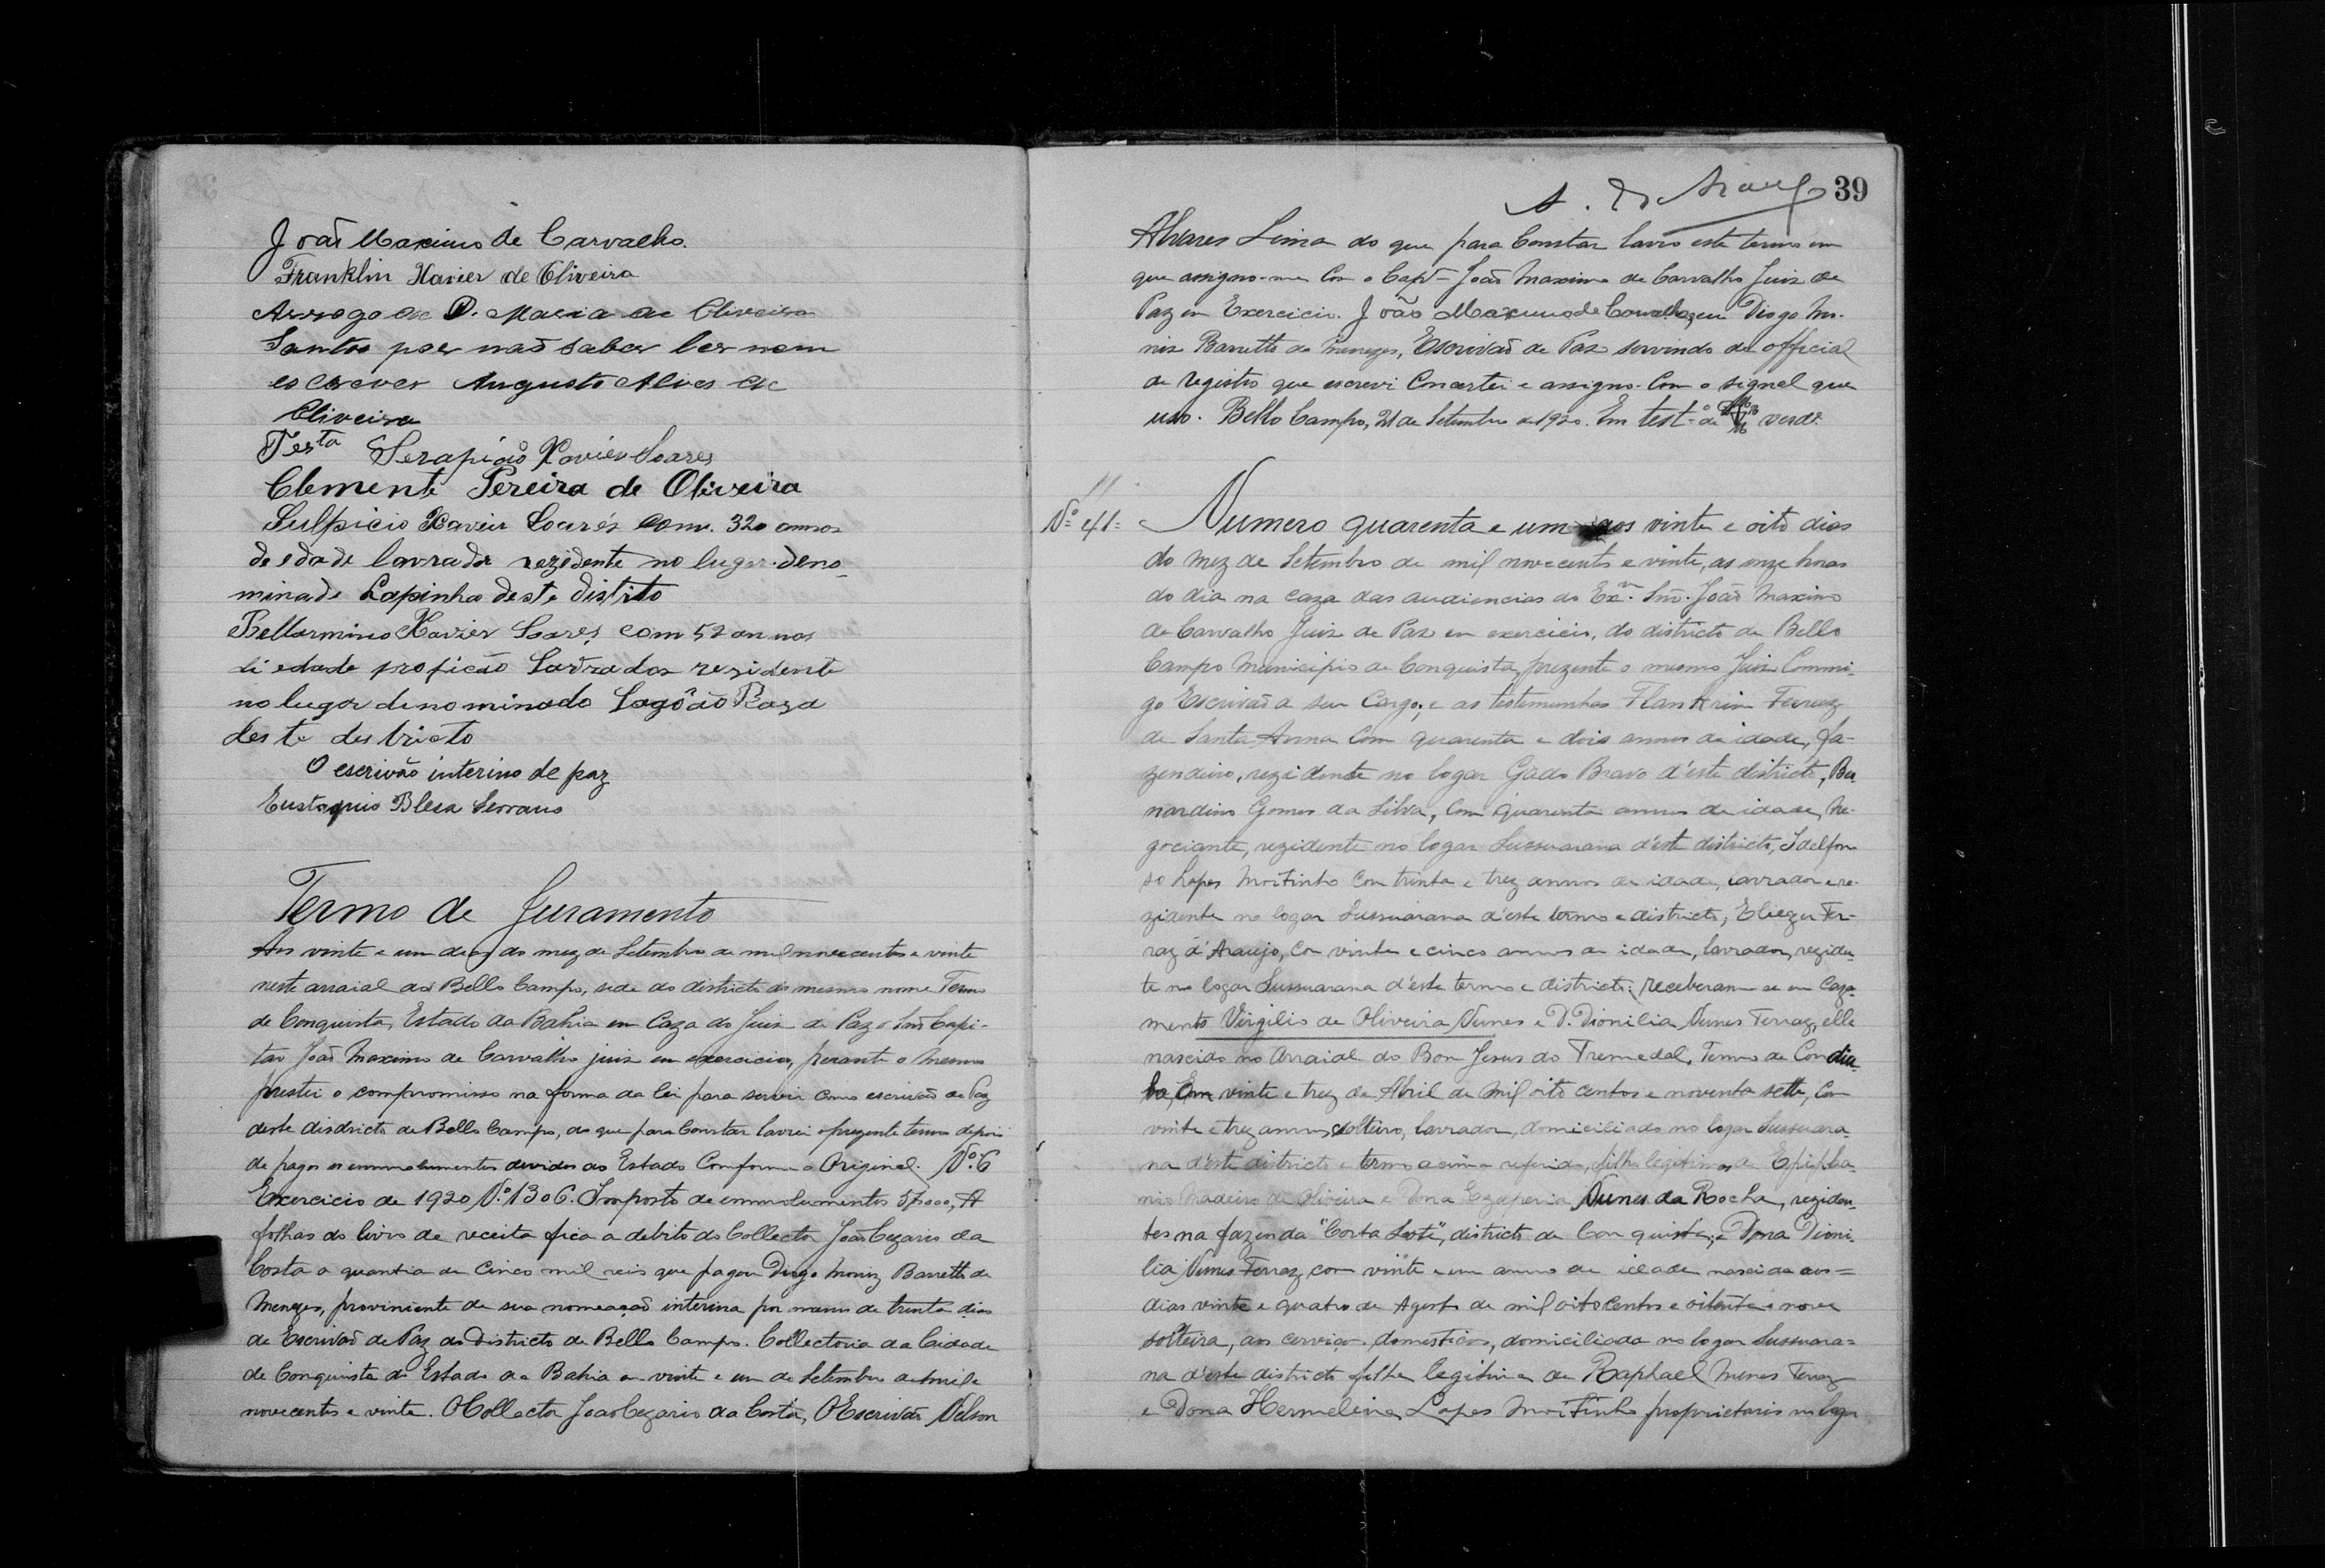 João Maximo de Carvalho.
Franklin Xavier de Oliveira
Arrogo de D. Maria de Oliveira
Santos por não saber ler nem
escrever Augusto Alves de
Oliveira
Testa Serapião Xavier Soares
Clemente Pereira de Oliveira
Sulpicio Xavier Soarés com. 32 annos
de edade lavrador rezidente no lugar deno-
minado Lapinha deste distito
Bellarmino Xavier Soares com 52 annos
di edade proficão Lavrador rezidente
no lugar dinominado Lagôão Raza
deste destricto
O escrivão interino de paz
Eustaquio Blesa Serrano
Termo de Juramento
Aos vinte e um dias do mez de Setembro de mil novecentos e vinte
neste arraial do Bello Campo, sede do districto do mesmo nome Termo
de Conquista, Estado da Bahia em Caza do Juiz de Paz o Snr Capi-
tão João Maximo de Carvalho juiz em exercicio, perante o mesmo
prestei o compromisso na forma da lei para servir como escrivão de Paz
deste disdricto de Bello Campo, do que para Constar lavrei o prezente termo depois
de pagos os emmolumentos devidos ao Estado Conforme o Original. Nº 6
Exercicio de 1920 Nº 1306. Imposto de emmolumentos 5$000, A
folhas do livro de receita fica a debito do Collector João Cezario da
Costa a quantia de Cinco mil reis que pagou Diogo Moniz Barretto de
Menezes, proviniente de sua nomeação interina por mais de trinta dias
de Escrivão de Paz do Districto de Bello Campo. Collectoria da Cidade
de Conquista do Estado da Bahia em vinte e um de Setembro de mil e
novecentos e vinte. O Collector João Cezario da Costa, O Escrivão Nelson
39
Alvares Lima do que para Constar lavro este termo em
que assigno-me Com o Capm João Maximo de Carvalho Juiz de
Paz em Exercicio. João Maximo de Carvalho, eu Diogo Mo-
niz Barretto de Menezes, Escrivão de Paz servindo de official
de registro que escrevi Concertei e assigno. Com o signal que
uso. Bello Campo, 21 de Setembro de 1920. Em testº de verdº
Nº 41= Numero quarenta e um aos vinte e oito dias
do mez de Setembro de mil novecentos e vinte, as onze horas
do dia na caza das audiencias do Exm. Snr. João Maximo
de Carvalho Juiz de Paz em exercicio, do districto de Bello
Campo Municipio de Conquista, prezente o mesmo Juiz Commi-
go Escrivão a seu Cargo; e as testemunhas Flanklin Ferraz
de Santa Anna Com quarenta e dois annos de idade, fa-
zendeiro, rezidente no logar Gado Bravo d'este districto, Ber-
nardino Gomes da Silva, Com quarenta annos de idade, Ne-
gociante, rezidente no logar Sussuarana d'este districto, Idelfon
so Lopes Moitinho Com trinta e trez annos de idade, lavrador e re-
zidente no logar Sussuarana d'este termo e districto; Eliezer Fer-
raz d'Araujo, Com vinte e cinco annos de idade, lavrador, reziden-
te no logar Sussuarana d'este termo e districto; receberam-se em Caza-
mento Virgilio de Oliveira Nunes e D. Dionilia Nunes Ferraz, elle
nascido no Arraial do Bom Jesus do Tremedal, Termo de Condeu-
ba, Em vinte e trez de Abril de mil oito centos e noventa sette, Com
vinte e trez annos, solteiro, lavrador, domiciliado no logar Sussuara-
na d'este districto e termo acima referido, filho legitimo de Epipha-
nio Madeiro de Oliveira e Dona Nunes da Rocha, reziden-
tes na fazenda "Corta Lote", districto de Conquista; e Dona Dioni-
lia Nunes Ferraz, com vinte e um annos de idade nascida aos=
dias vinte e quatro de Agosto de mil oito centos e oitenta e nove
solteira, aos serviços domesticos, domiciliada no logar Sussuara=
na d'este districto filha legitima de Raphael Nunes Ferraz
e Dona Hermelina Lopes Moitinho proprietarios no logar